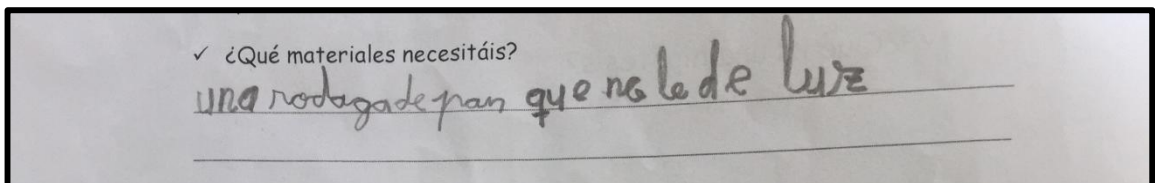 ✓ ¿Qué materiales necesitáis?
una rodaga de pan que no le de luz